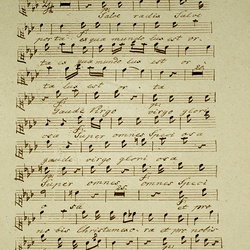 Salve radix Salve
porta ex qua mundo lux est or,
ta ex qua mundo lux est or
ta lux est or, ta
Gaude Virgo virgo glori
osa Super omnes Speci osa
gaude virgo glori osa
Super omnes, omnes Speci
osa et pro
no bis Christum exo, ra et pro nobis